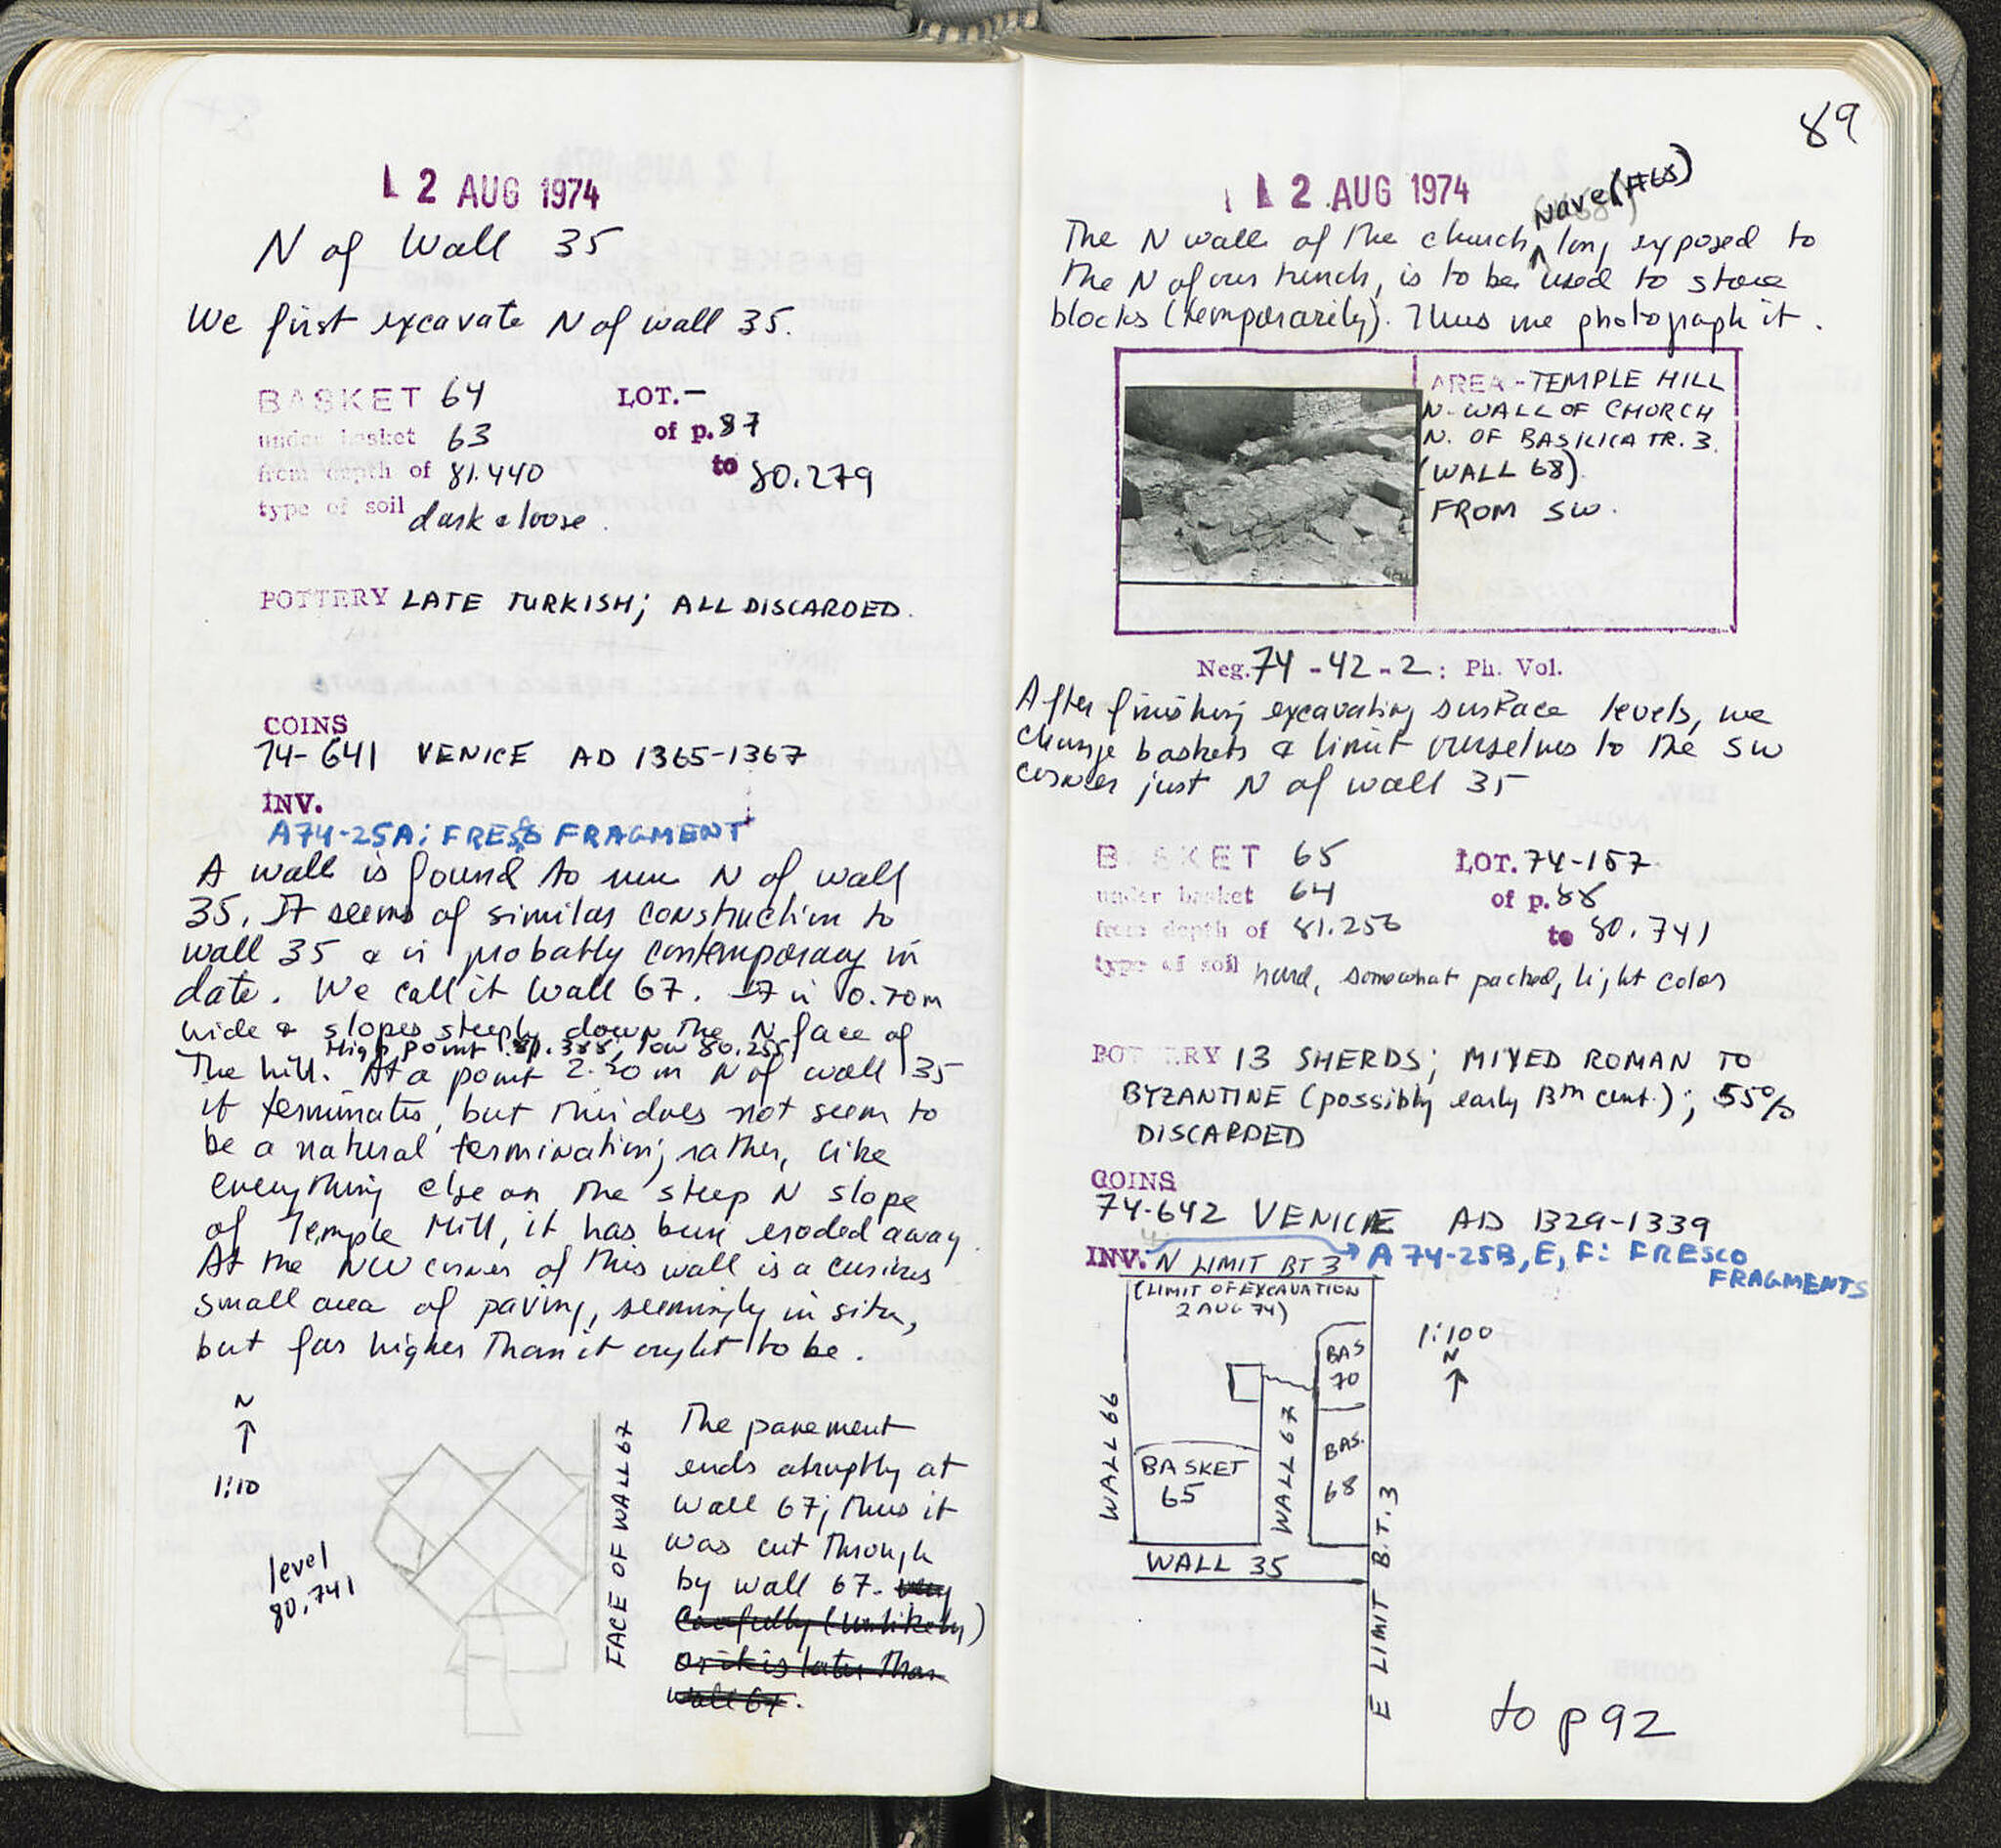 2 AUG 1974
N of Wall 35
We first excavate N of wall 35.
BASKET 64 LOT. —
under basket 63 of p. 87
from depth of 81.440 to 80.279
type of soil dark & loose.
POTTERY LATE TURKISH; ALL DISCARDED.
COINS
74-641 VENICE AD 1365-1367
INV.
A74-25A: FRESCO FRAGMENT
A wall is found to run N of wall
35. It seems of similar construction to
wall 35 & is probably contemporary in
date. We call it Wall 67. It is 0.70m
wide & slopes steeply down the N face of
High point 81.388, low 80.255
the hill. At a point 2.20m N of wall 35
it terminates, but this does not seem to
be a natural termination; rather, like
everything else on the steep N slope
of Temple Hill, it has been eroded away.
At the NW corner of this wall is a curious
small area of paving, seemingly in situ,
but far higher than it ought to be.
N
1:10
level
80.741
FACE OF WALL 67
The pavement
ends abruptly at
wall 67; thus it
was cut through
by wall 67. very
carefully (unlikely)
or it is later than
wall 67.
89
2 AUG 1974
Nave (#68)
The N wall of the church, long exposed to
the N of our trench, is to be used to store
blocks (temporarily). Thus we photograph it.
AREA - TEMPLE HILL
N. WALL OF CHURCH
N. OF BASILICA TR. 3.
(WALL 68).
FROM SW.
Neg. 74-42-2: Ph. Vol.
After finishing excavating surface levels, we
change baskets & limit ourselves to the SW
corner just N of wall 35
BASKET 65 LOT. 74-157
under basket 64 of p. 88
from depth of 81.256 to 80.741
type of soil hard, somewhat packed, light color
POTTERY 13 SHERDS; MIXED ROMAN TO
BYZANTINE (possibly early 13th cent.); 55%
DISCARDED
COINS
74-642 VENICE AD 1329-1339
INV. A 74-25B, E, F: FRESCO
FRAGMENTS
N LIMIT BT 3
(LIMIT OF EXCAVATION
2 AUG 74)
1:100
N
BAS
70
WALL 66
WALL 67
BAS.
68
BASKET
65
WALL 35
E LIMIT B.T. 3
to p 92